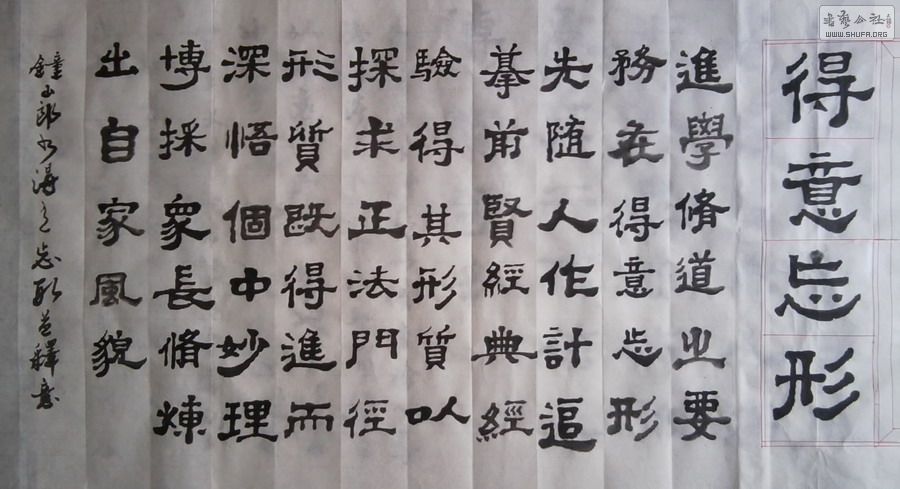 得意忘形
進學脩道之要
務在得意忘形
先隨人作計追
摹前賢經典經
驗得其形質以
探求正法門徑
形質既得進而
深悟個中妙理
博採衆長脩煉
出自家風貌
鐘山郎忘形並釋意
書藝公社
WWW.SHUFA.ORG